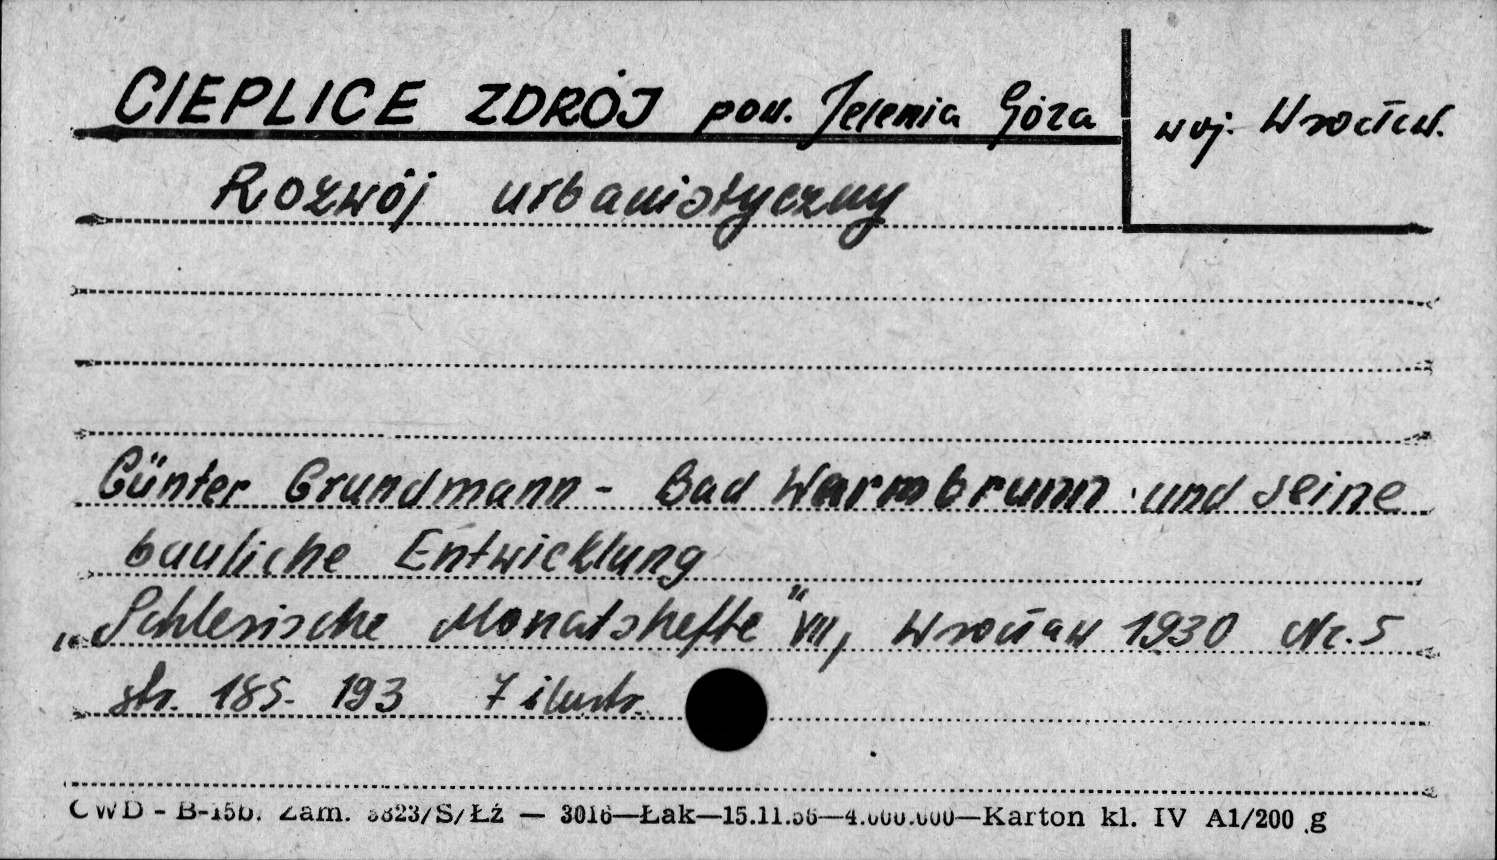 CIEPLICE ZDRÓJ pow. Jelenia Góra
woj. Wrocław.
Rozwój urbanistyczny
Günter Grundmann - Bad Warmbrunn und seine
bauliche Entwicklung
„Schlesische Monatshefte" VII, Wrocław 1930 Nr. 5
str. 185-193 7 ilustr.
CWD - B-15b. Zam. 3823/S/Łź — 3016—Łak—15.11.56—4.000.000—Karton kl. IV A1/200 g